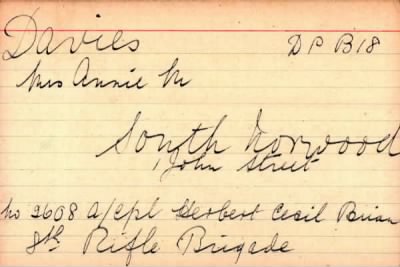 Davies D P B18
Mrs Annie M
South Norwood
1 John Street
No 2608 A/Cpl Herbert Cecil Brian
8th Rifle Brigade